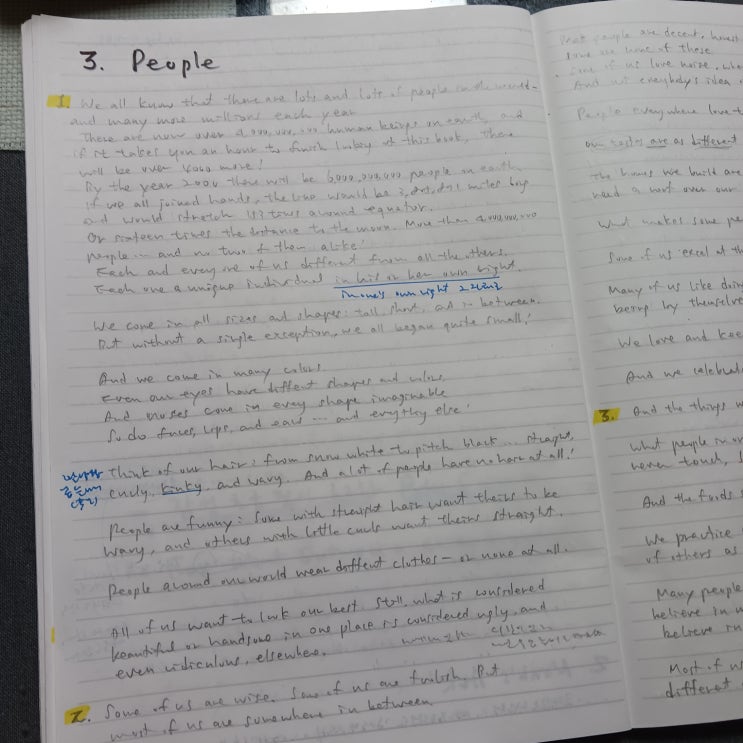 3. People
1. We all know that there are lots and lots of people in the world -
and many more millions each year
There are now over 4,000,000,000 human beings on earth, and
if it takes you an hour to finish looking at this book, there
will be over more!
By the year 2000 there will be 6,000,000,000 people on earth.
If we all joined hands, the line would be miles long
and would stretch 153 times around equator.
Or sixteen times the distance to the moon. More than 4,000,000,000
people ... and no two of them alike!
Each and every one of us different from all the others.
Each one a unique individual in his or her own right.
in one's own right
We come in all sizes and shapes: tall, short, and in between.
But without a single exception, we all began quite small!
And we come in many colors.
Even our eyes have different shapes and colors.
And noses come in every shape imaginable
So do faces, lips, and ears ... and everything else!
Think of our hair: from snow white to pitch black ... straight,
curly, kinky, and wavy. And a lot of people have no hair at all!
People are funny: Some with straight hair want theirs to be
wavy, and others with little curls want theirs straight.
People around our world wear different clothes - or none at all.
All of us want to look our best. Still, what is considered
beautiful or handsome in one place is considered ugly, and
even ridiculous, elsewhere.
2. Some of us are wise. Some of us are foolish. But
most of us are somewhere in between.
Most people are decent, honest
Some are none of these
Some of us love noise, whe
And not everybody's idea
People everywhere love t
our tastes are as different
The homes we build are
need a roof over our
What makes some pe
Some of us excel at th
Many of us like doin
being by themselve
We love and kee
And we celebrat
3. And the things w
What people in on
never touch,
And the foods
We practice
of others as
Many people
believe in
believe in
Most of w
different